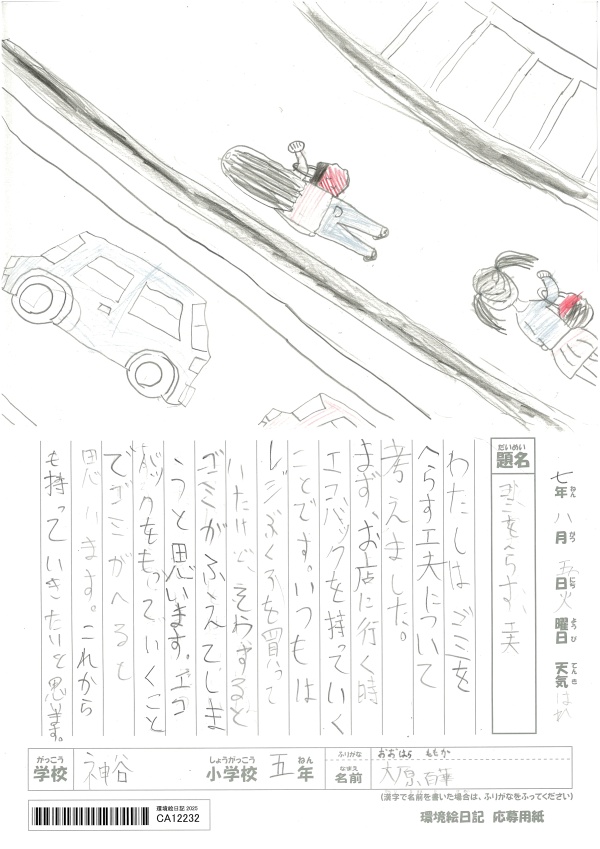 七年 八月 五日 火曜日 天気 はれ
ねん がつ にち ようび てんき
題名 ゴミをへらす、工夫
だいめい
わたしは ゴミを
へらす工夫について
考えました。
まず、お店に行く時
エコバックを持っていく
ことです。いつもは
レジぶくろを買って
いたけど、そわすると
ゴミがふえてしま
うと思います。エコ
バックをもっていくこと
でゴミがへると
思います。これから
も持っていきたいと思います。
がっこう しょうがっこう ねん ふりがな おおはら ももか
学校 神谷 小学校 五年 なまえ 名前 大原 百華
(漢字で名前を書いた場合は、ふりがなをふってください)
環境絵日記 2025
CA12232
環境絵日記 応募用紙